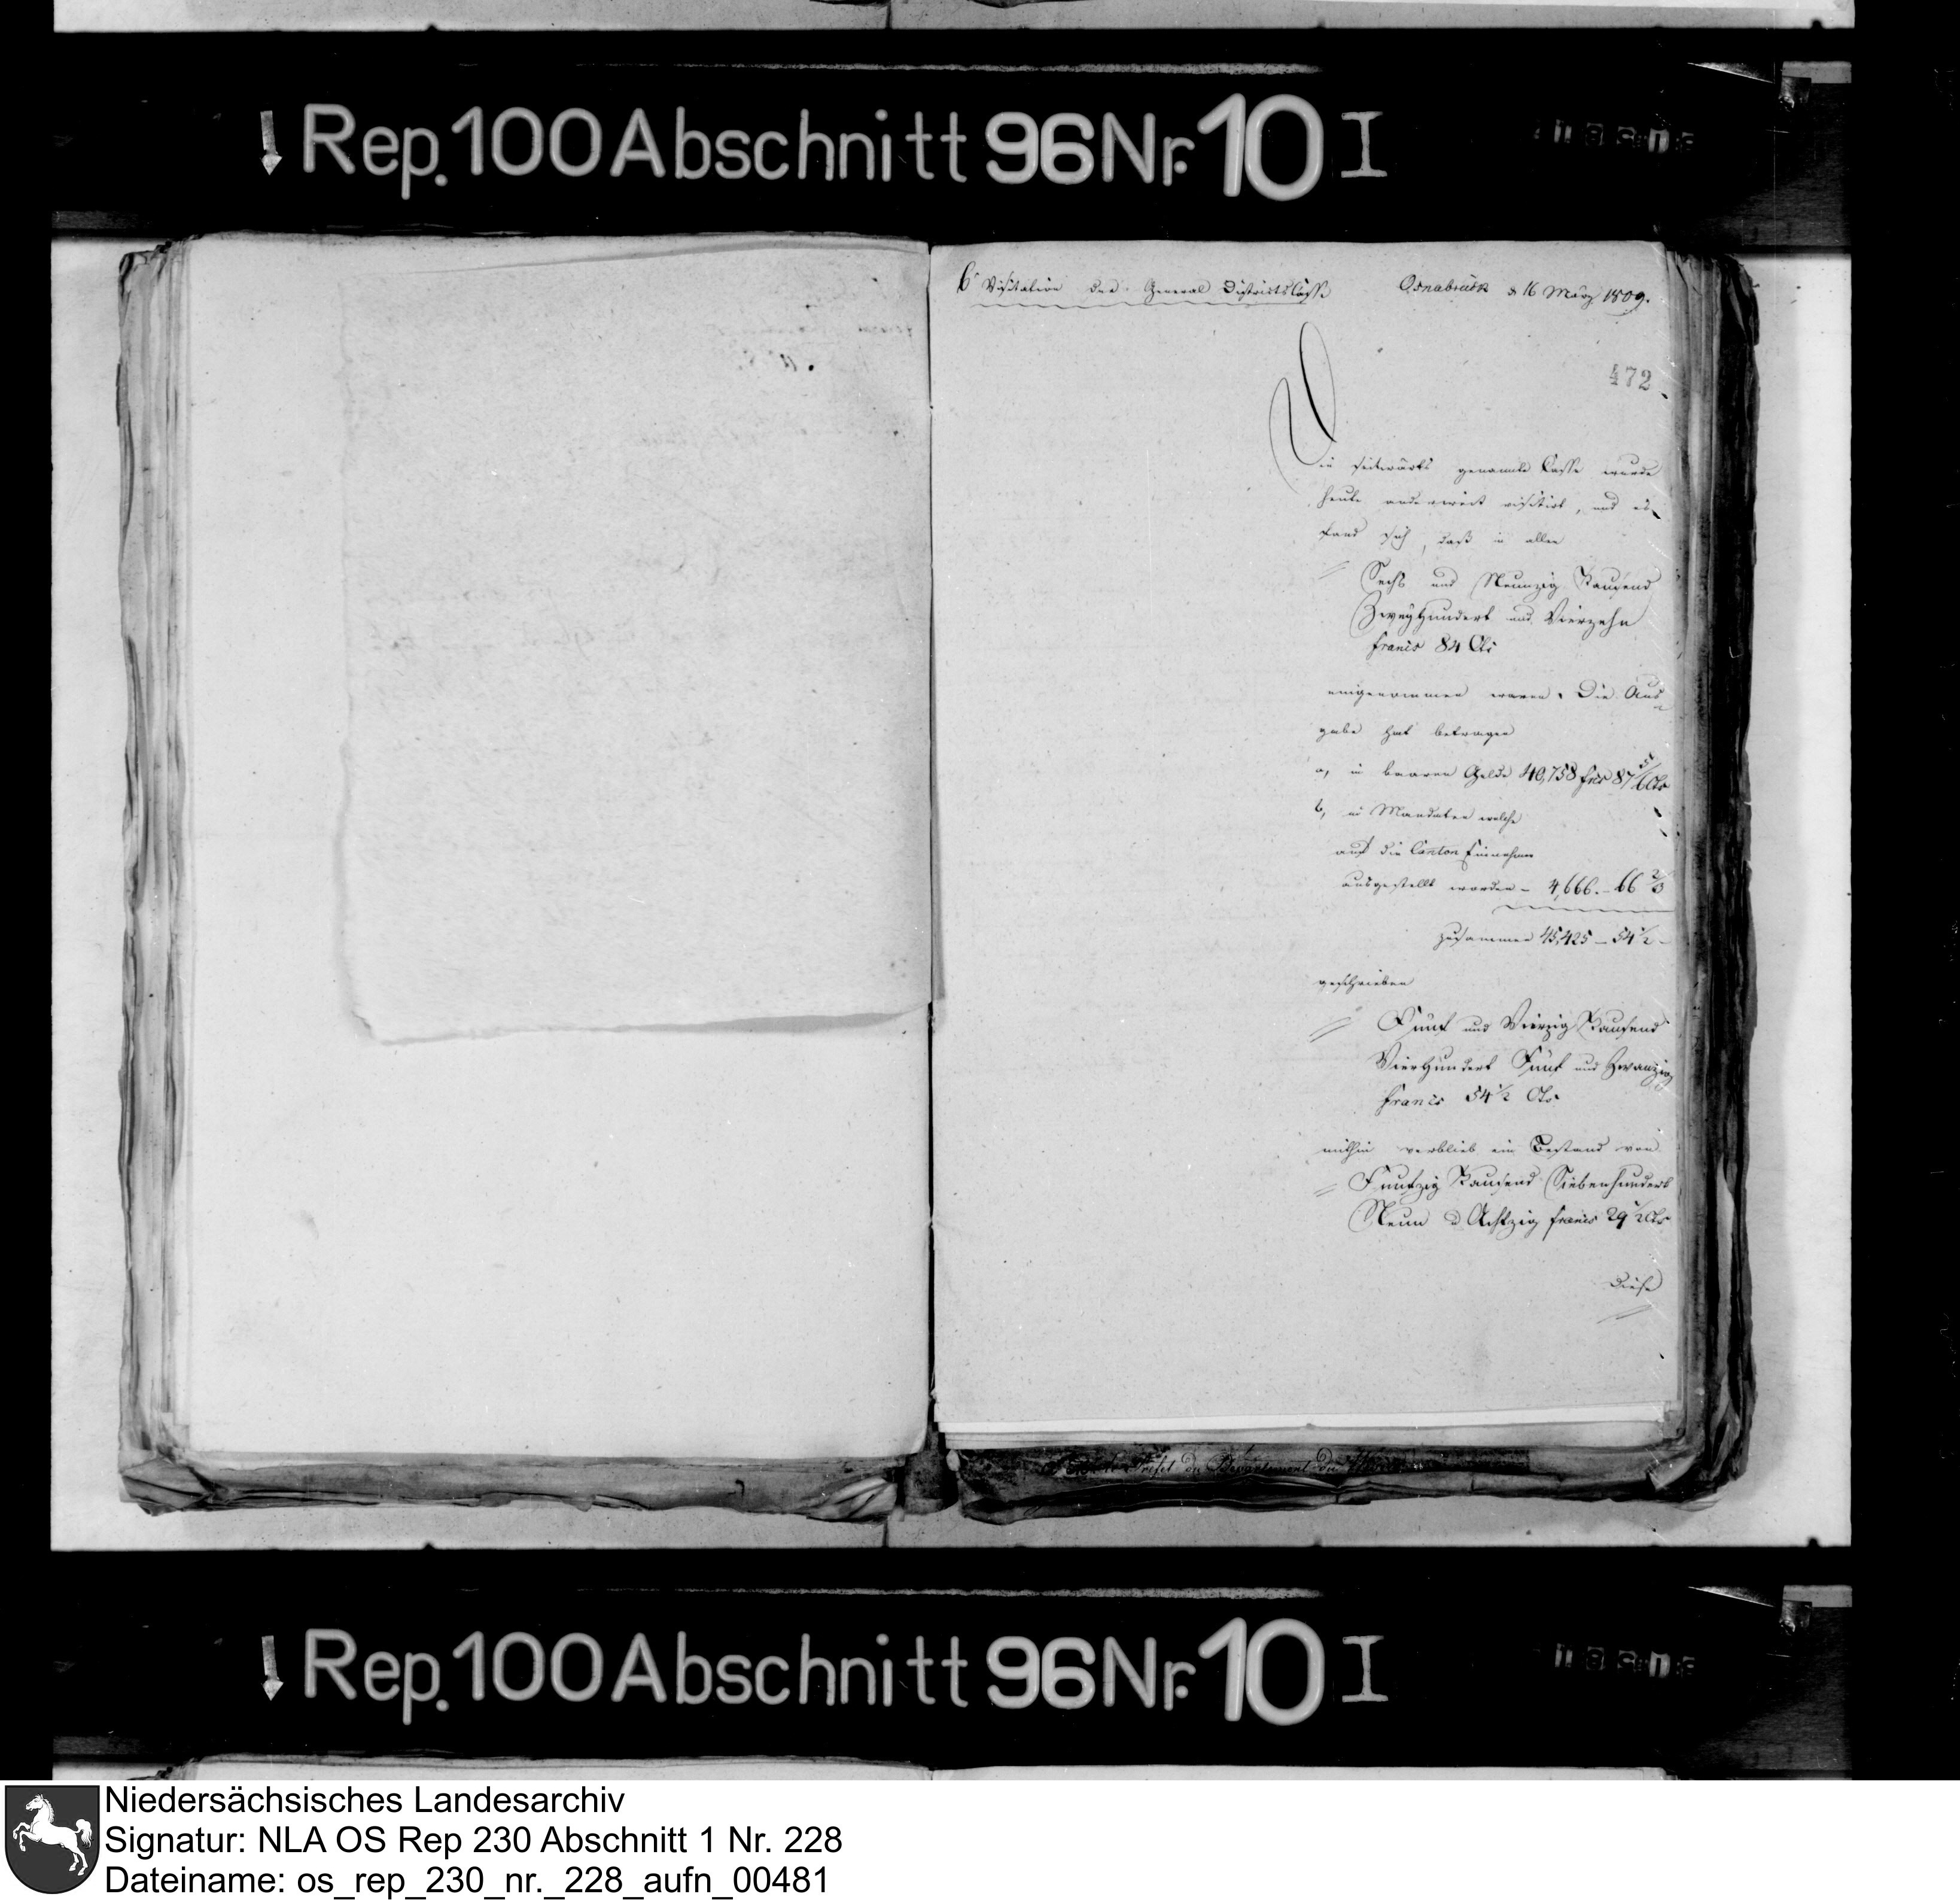 Rep. 100 Abschnitt 96 Nr. 10 I
6 Visitation der General Districtscasse
Osnabrück d 16 März 1809.
472
Die seitwärts genannte Casse wurde
heute anderweit visitirt, und es
fand sich, daß in allen
Sechs und Neunzig Tausend
Zweyhundert und Vierzehn
francs 84 Cts
eingenommen waren. Die Aus-
gabe hat betragen
a, in baaren Gelde 40,758 frcs 87 5/6 Cts
b, in Mandaten welche
auf die Canton Einnehmer
ausgestellt worden – 4,666. – 66 2/3
zusammen 45,425 – 54 1/2 –
geschrieben
Fünf und Vierzig Tausend
Vierhundert Fünf und Zwanzig
francs 54 1/2 Cts
mithin verblieb ein Bestand von
Funfzig Tausend Siebenhundert
Neun u Achtzig francs 29 1/2 Cts
Diese
Préfet du Département du
Rep. 100 Abschnitt 96 Nr. 10 I
Niedersächsisches Landesarchiv
Signatur: NLA OS Rep 230 Abschnitt 1 Nr. 228
Dateiname: os_rep_230_nr._228_aufn_00481